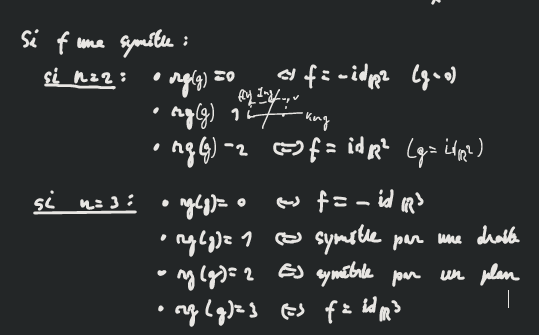 Si f une symétrie :
si n=2 : • rg(g) = 0 ⇔ f = -id ℝ² (g=0)
• rg(g) 1 Img Kerg
• rg(g) = 2 ⇔ f = id ℝ² (g = id ℝ²)
si n=3 : • rg(g) = 0 ⇔ f = - id ℝ³
• rg(g) = 1 ⇔ symétrie par une droite
• rg(g) = 2 ⇔ symétrie par un plan
• rg(g) = 3 ⇔ f = id ℝ³